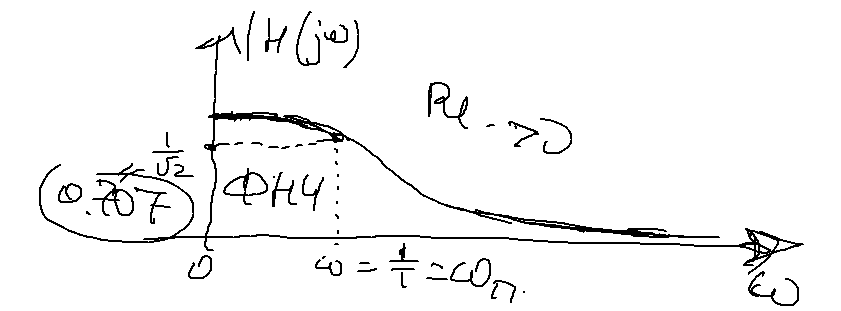 |H(jω)
Re → 0
1/√2
0.707
ФНЧ
0
ω = 1/τ = ωп.
ω